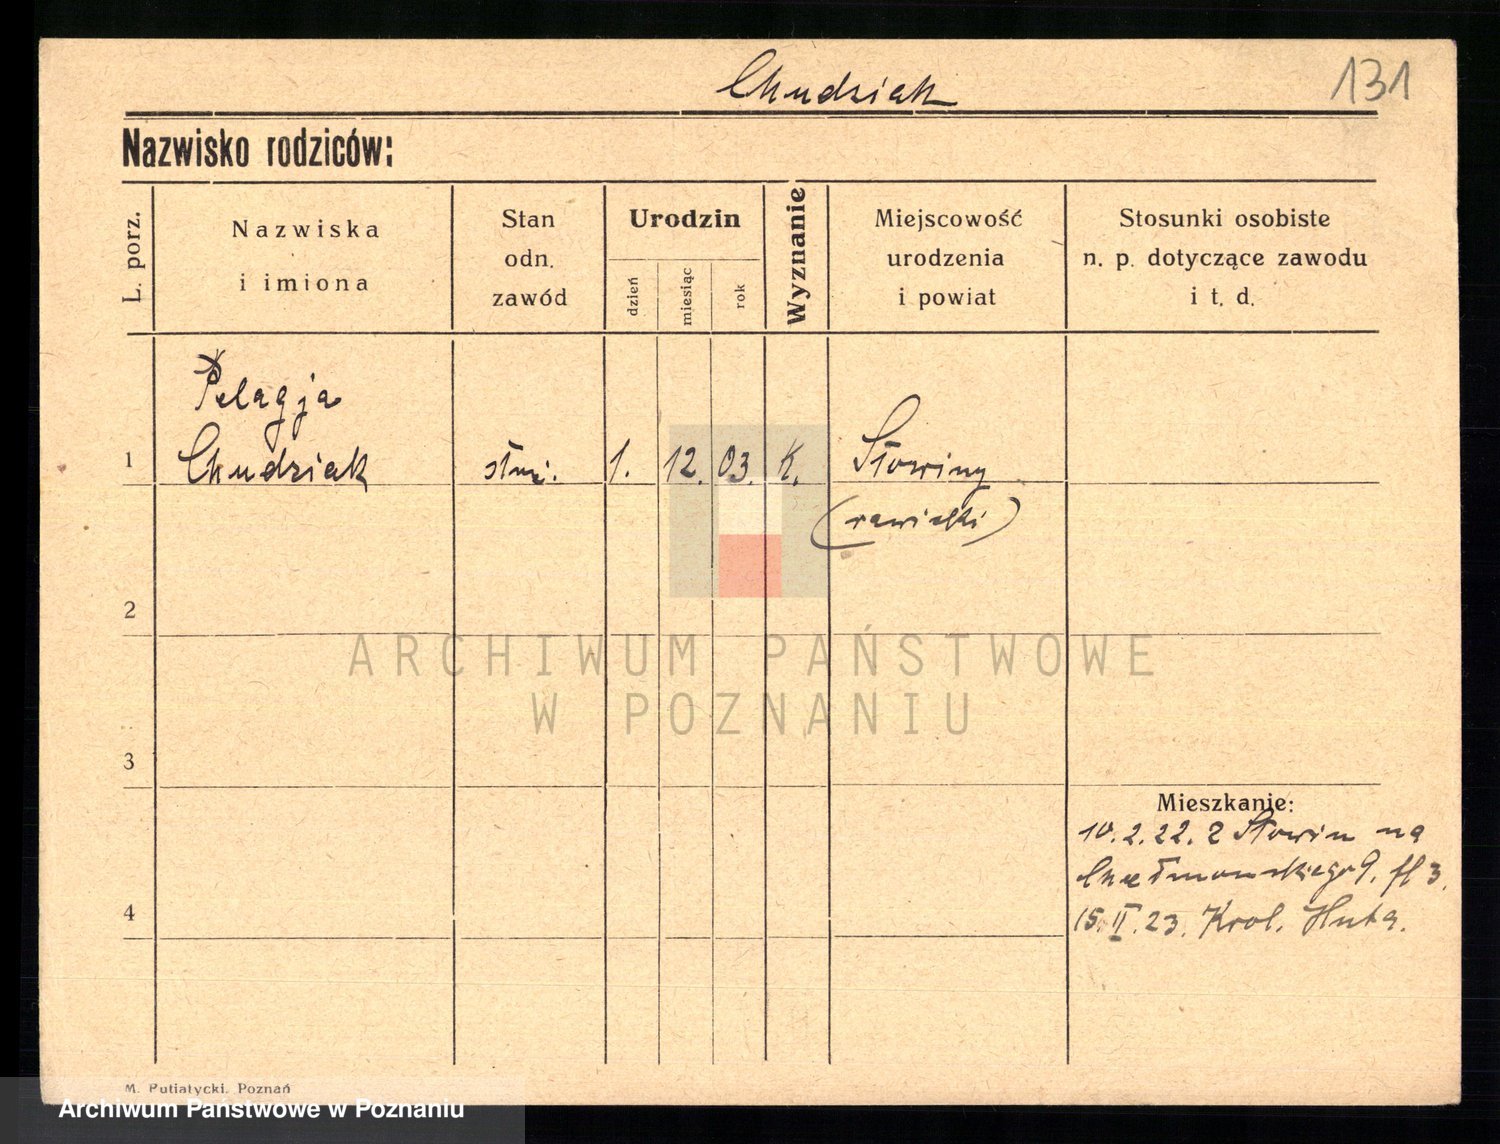 Chudziak
131
Nazwisko rodziców:
L. porz.
Nazwiska
i imiona
Stan
odn.
zawód
Urodzin
dzień
miesiąc
rok
Wyznanie
Miejscowość
urodzenia
i powiat
Stosunki osobiste
n. p. dotyczące zawodu
i t. d.
Pelagja
1 Chudziak służ. 1. 12. 03. K. Słowiny
(rawicki)
2
ARCHIWUM PAŃSTWOWE
W POZNANIU
3
Mieszkanie:
10.2.22. z Słowin na
Chełmońskiego 9. fl 3.
4
15.II.23. Krol. Huta.
M. Putiatycki. Poznań
Archiwum Państwowe w Poznaniu